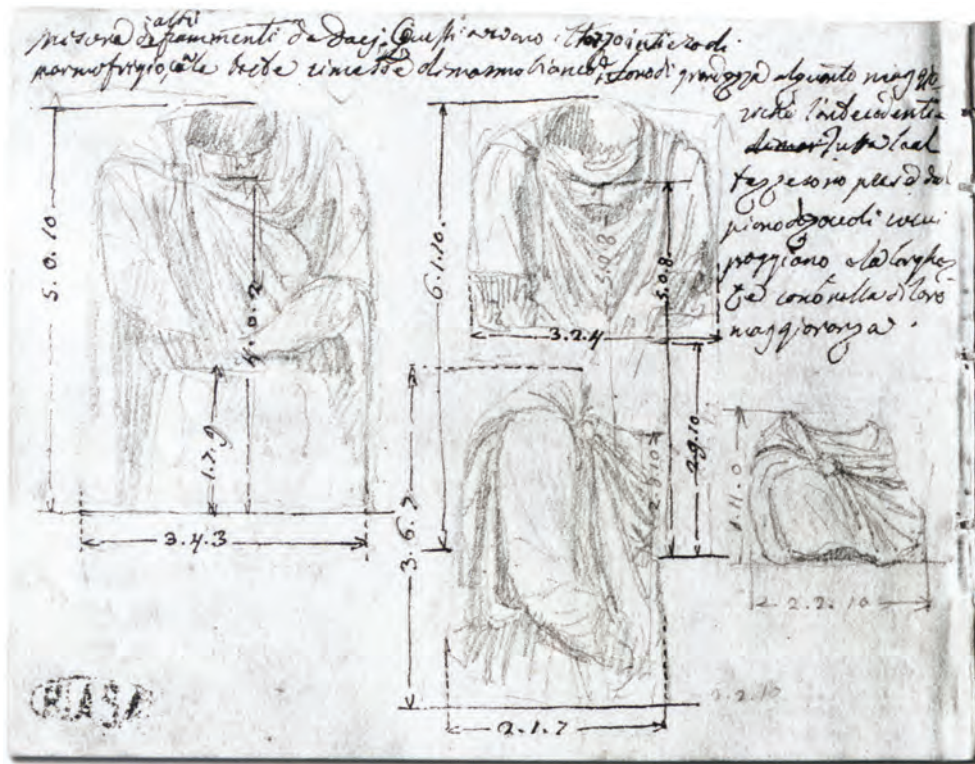 Misura di altri frammenti da Daci, Questi avevano il torzo intiero di
marmo frigio, e le teste rimesse di marmo bianco, sono di grandezza alquanto maggio
che l'antecedenti
Tutte le al
tezze sono prese dal
piano
poggiano e la larghez
ze nella di loro
maggioranza.
5.0.10
4.0.2
1.7.9
3.4.3
6.1.10.
5.0.8
5.0.8
3.2.4
2.9.10
3.6.7
2.8.10
2.1.7
1.11.0
2.2.10
2.2.10
BIASA